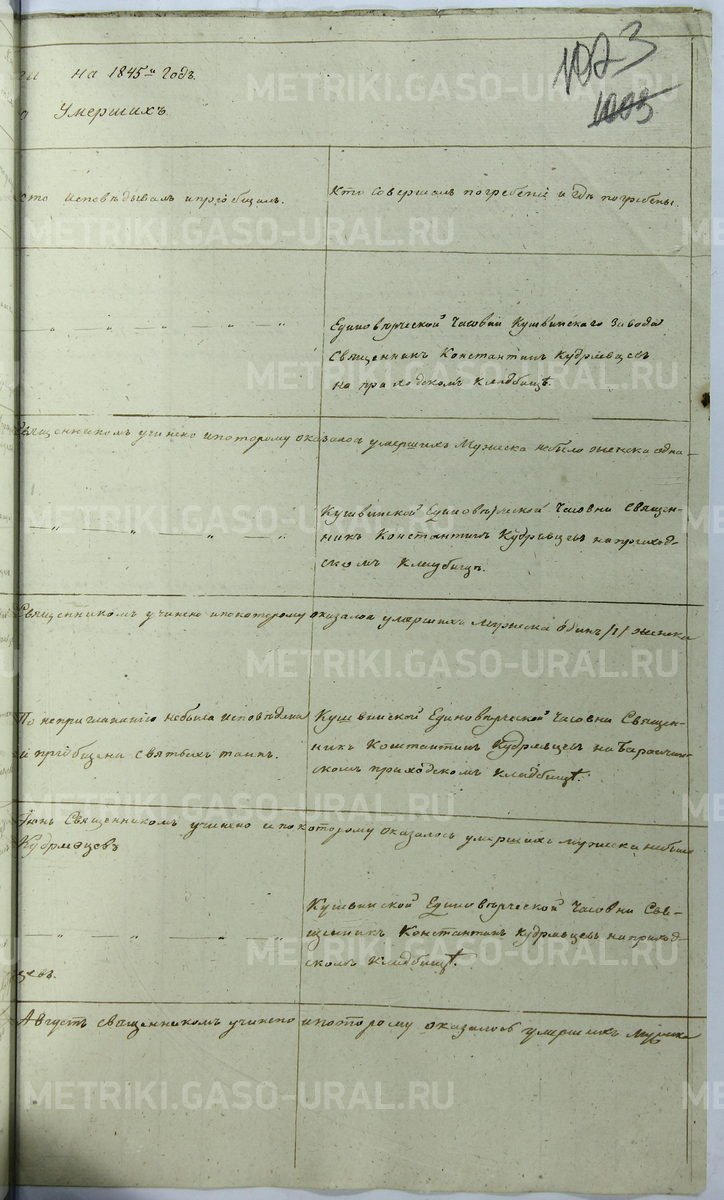 1023
1003
ги на 1845й Годъ.
о Умершихъ.
Кто Исповѣдывалъ и пріобщалъ.
Кто Совершалъ погребеніе и гдѣ погребены.
Единовѣрческой Часовни Кушвинскаго Завода
Священникъ Константинъ Кудрявцевъ
на приходскомъ кладбищѣ.
Священникомъ учинено и по которому оказалось умершихъ Мужеска небыло женска одна
Кушвинской Единовѣрческой Часовни Священ-
никъ Константинъ Кудрявцевъ на приход-
скомъ Кладбищѣ.
Священникомъ учинено и по которому оказалось умершихъ Мужеска одинъ /1/ женска
По неприглашенію небыла исповѣдана
и пріобщена святыхъ таинъ.
Кушвинской Единовѣрческой Часовни Священ-
никъ Константинъ Кудрявцевъ на Баранчин-
скомъ приходскомъ Кладбищѣ.
Іюнь Священникомъ учинено и по которому оказалось умершихъ мужеска небыло
Кудрявцевъ
Кушвинской Единовѣрческой Часовни Свя-
щенникъ Константинъ Кудрявцевъ на приход-
скомъ Кладбищѣ.
цевъ.
Августъ священникомъ учинено и по которому оказалось умершихъ Мужска
METRIKI.GASO-URAL.RU